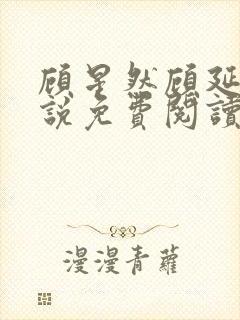 顾星然顾延
說免費閱讀
漫漫青蘿